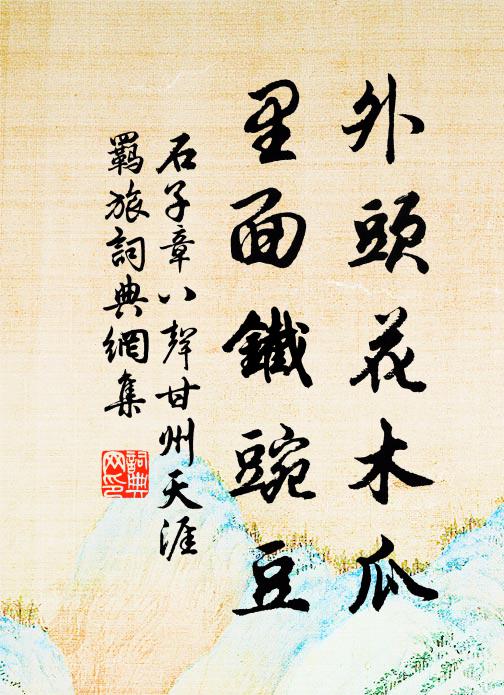 外頭花木瓜
里面鐵豌豆
石子章八聲甘州天涯
羇旅詞典網集
詞典網印